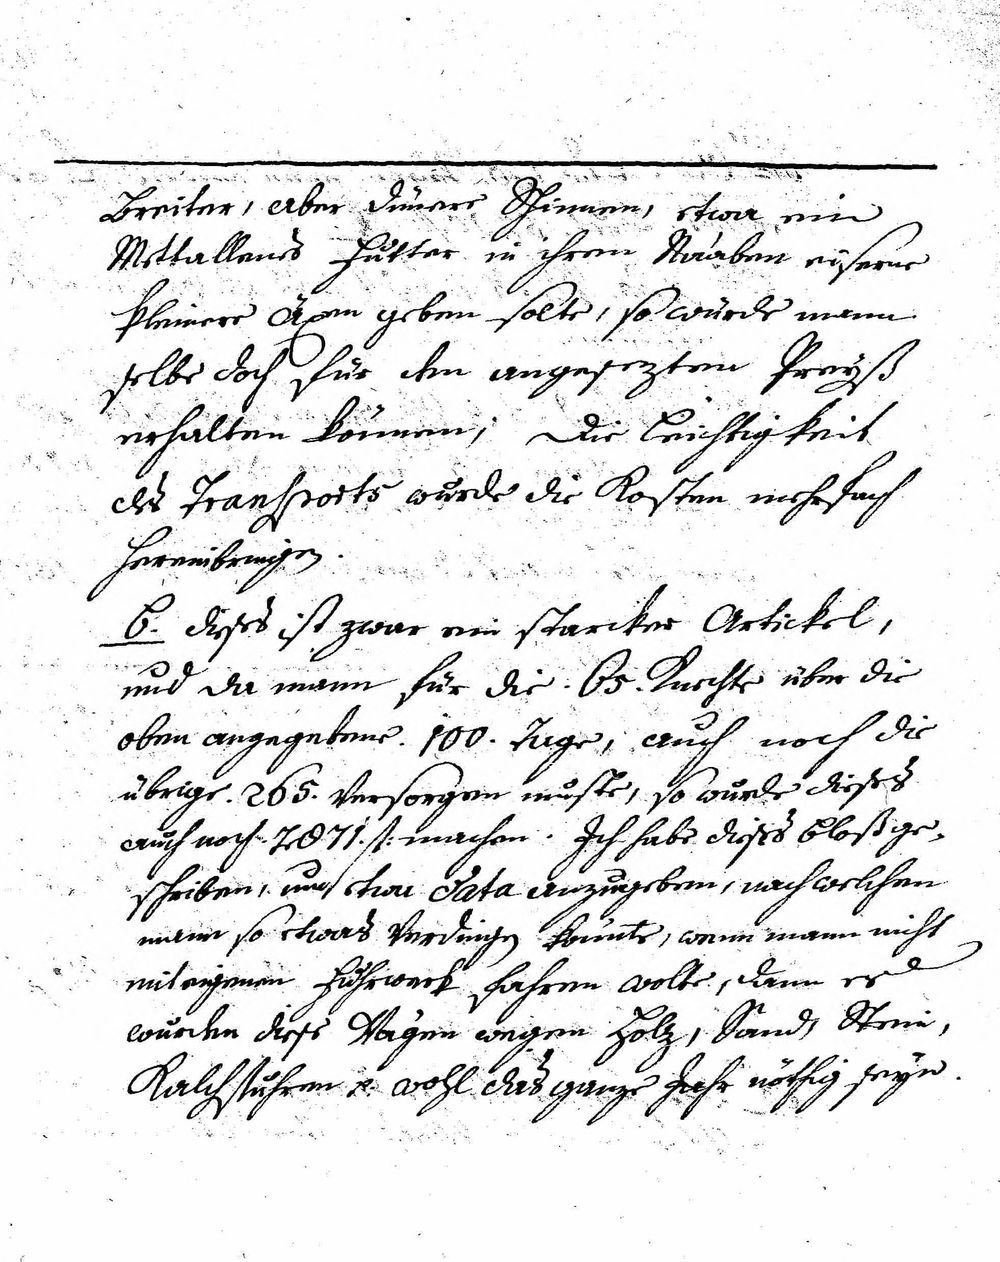 Breiter, aber dünere Schinnen, etwa ein
Mettallenes Futter in ihren Naaben eiserne
kleinere Äxen geben solte, so würde mann
selbe doch für den angesezten Preyß
erhalten können; Die Leichtigkeit
des Transports wurde die Kosten mehrfach
hereinbringen.
6. dieses ist zwar ein starcker Artickel,
und da mann für die 65. Knechte über die
oben angegebene. 100. Tage, auch noch die
übrige. 265. Versorgen muste, so wurde dieses
auch noch. machen. Ich habe dieses bloß ge-
schriben, um etwa Data anzugeben, nach welchen
mann so etwas Verdingen könnte, wenn mann nicht
mit eigenen Fuhrwerk fahren wolte, dann es
wurden diese Wägen wegen Holz, Sand, Stein,
Kalchfuhren wohl das ganze Jahr nöthig seyn.